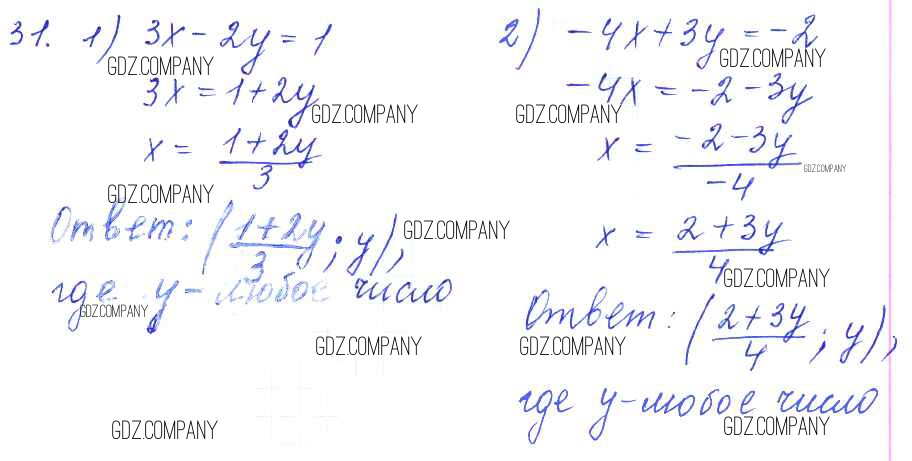 31. 1) 3x - 2y = 1
GDZ.COMPANY
3x = 1 + 2y
GDZ.COMPANY
x = \frac{1+2y}{3}
GDZ.COMPANY
Ответ: (\frac{1+2y}{3}; y),
GDZ.COMPANY
где y - любое число
GDZ.COMPANY
GDZ.COMPANY
GDZ.COMPANY
2) -4x + 3y = -2
GDZ.COMPANY
-4x = -2 - 3y
GDZ.COMPANY
x = \frac{-2-3y}{-4}
GDZ.COMPANY
x = \frac{2+3y}{4}
GDZ.COMPANY
Ответ: (\frac{2+3y}{4}; y),
GDZ.COMPANY
где y - любое число
GDZ.COMPANY